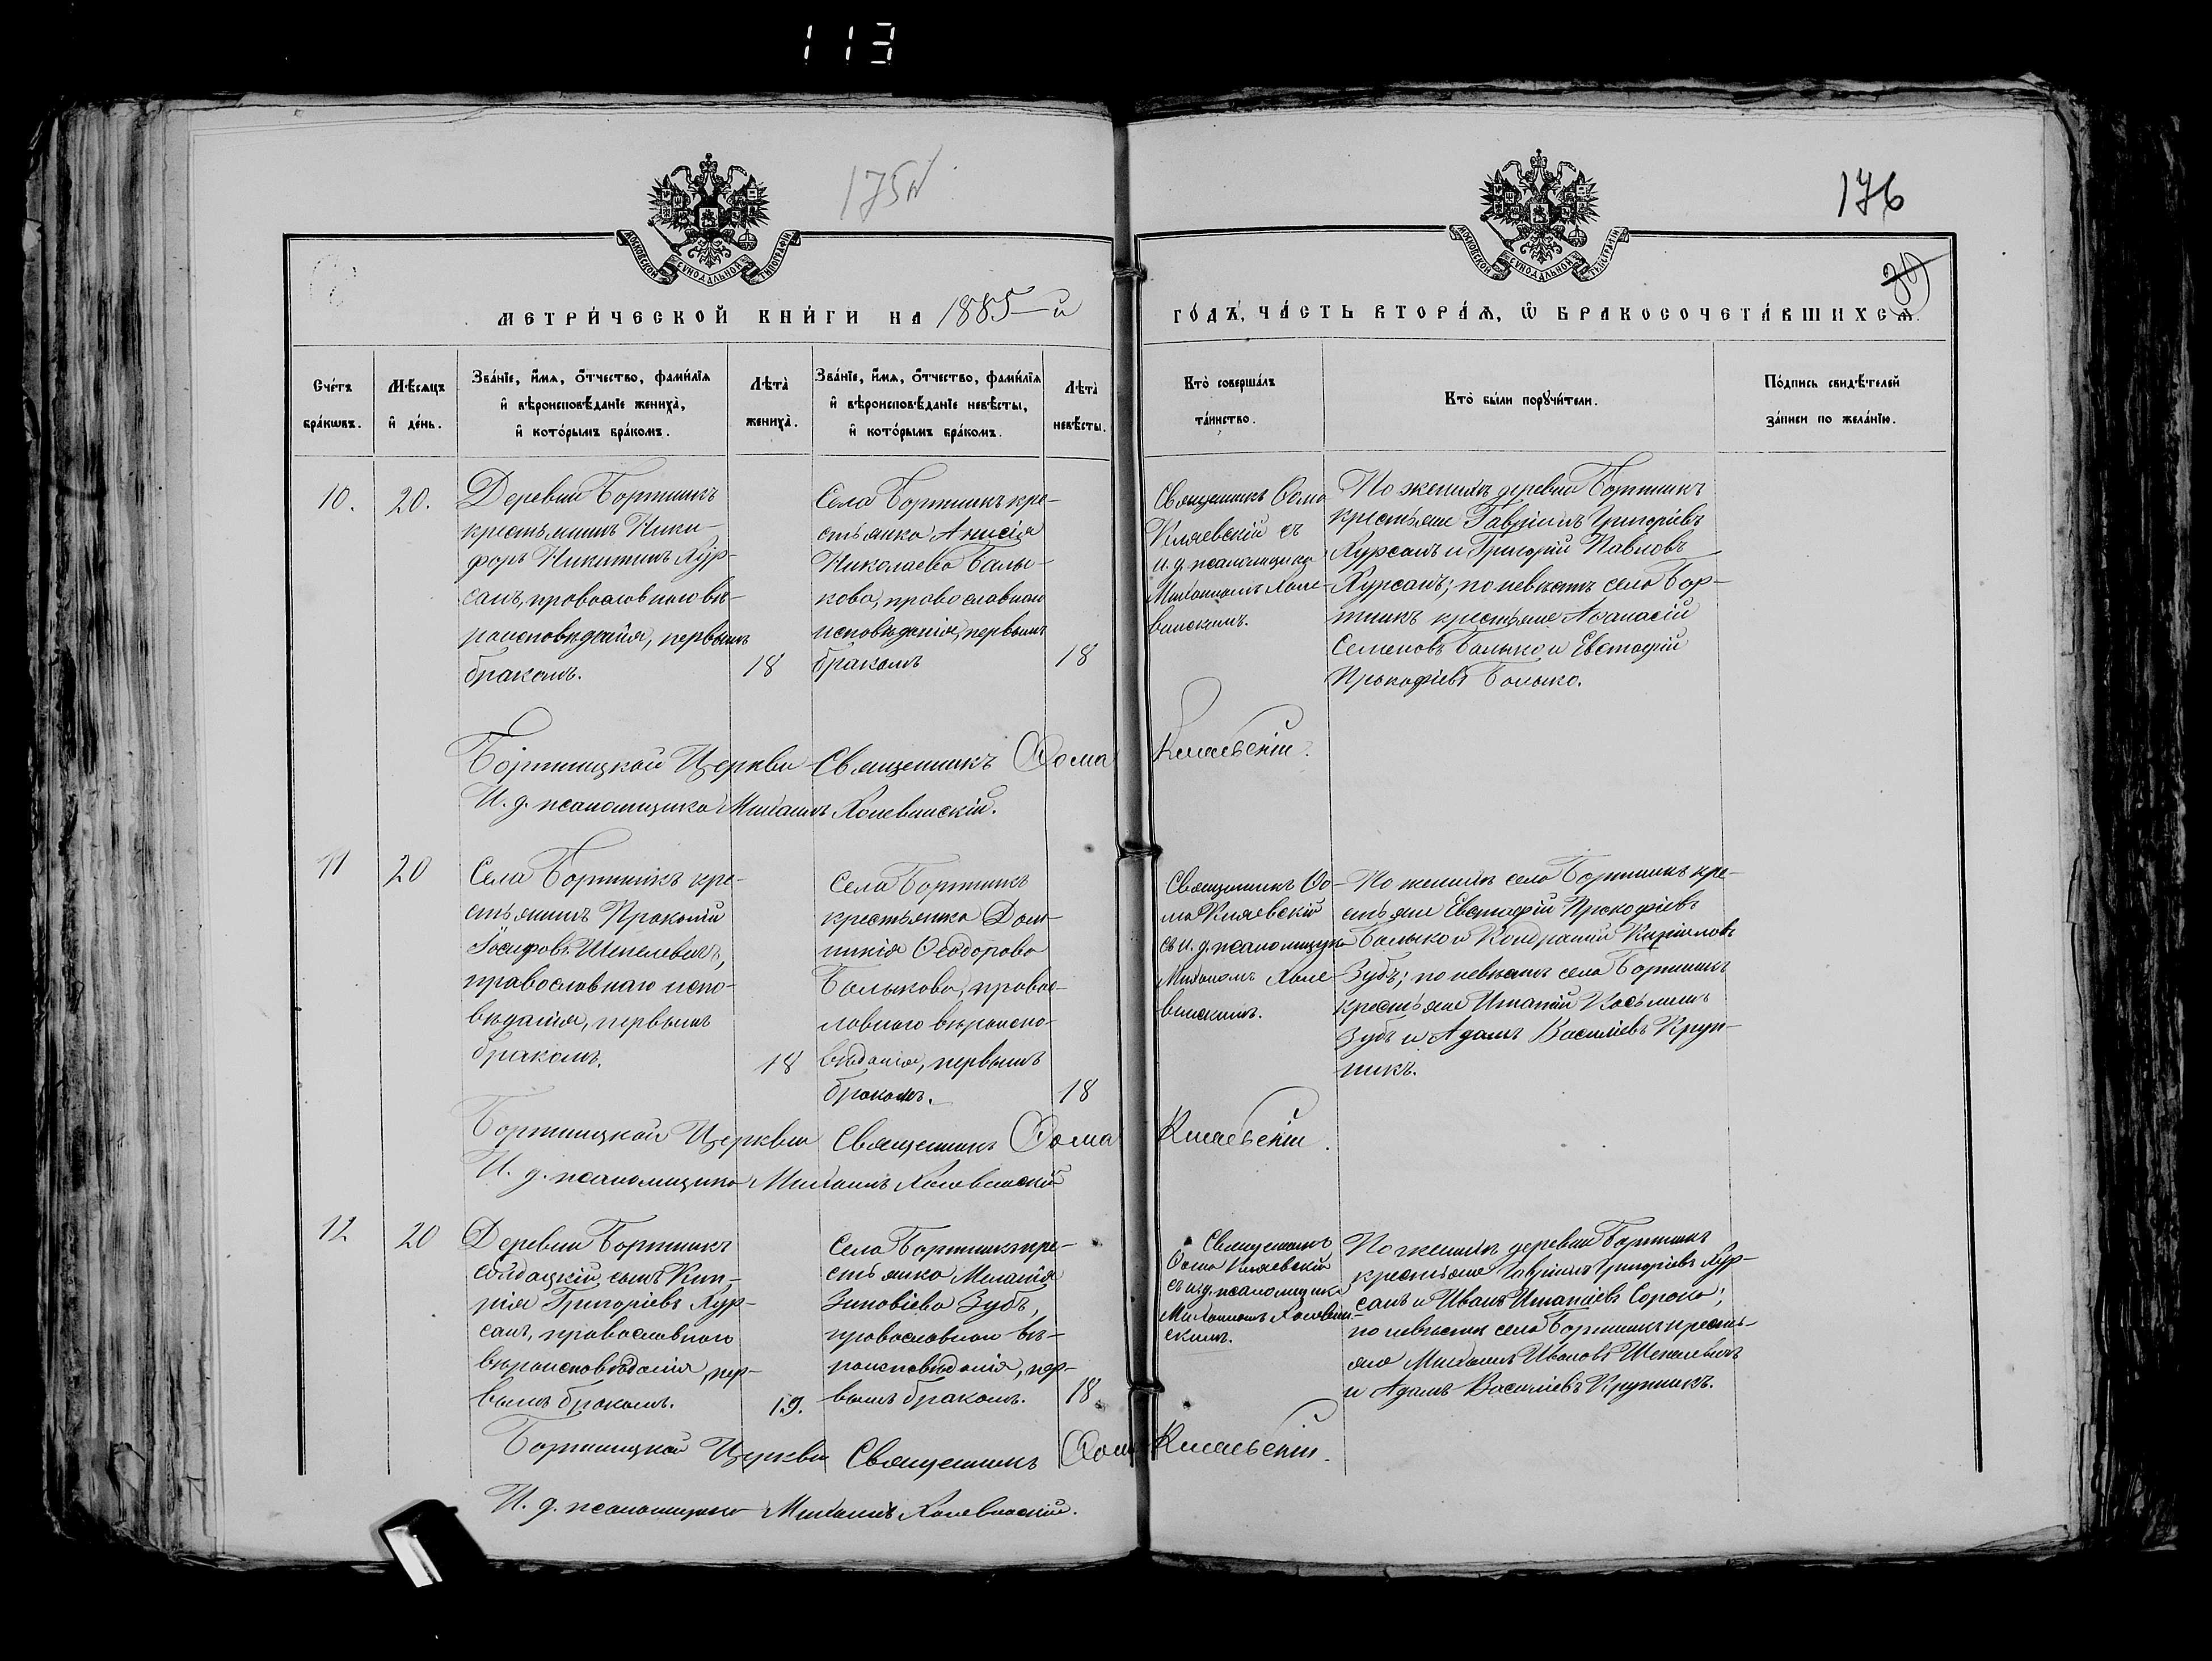 113
175
176
30
МОСКОВСКОЙ СУНОДАЛЬНОЙ ТИПОГРАФІИ
МОСКОВСКОЙ СУНОДАЛЬНОЙ ТИПОГРАФІИ
МЕТРИ́ЧЕСКОЙ КНИ́ГИ НА 1885-й
ГО́ДЪ, ЧА́СТЬ ВТОРА́Ѧ, Ѿ БРАКОСОЧЕТА́ВШИХСѦ.
Сче́тъ
бра́кѡвъ.
Мѣ́сяцъ
и҆ де́нь.
Зва́нїе, и҆́мѧ, ѻ҆́тчество, фамѝлїѧ
и҆ вѣроисповѣ́данїе жениха̀,
и҆ кото́рымъ бра́комъ.
Лѣта̀
жениха̀.
Зва́нїе, и҆́мѧ, ѻ҆́тчество, фамѝлїѧ
и҆ вѣроисповѣ́данїе невѣ́сты,
и҆ кото́рымъ бра́комъ.
Лѣта̀
невѣ́сты.
Кто̀ соверша́лъ
та́инство.
Кто̀ бы́ли порꙋчи́тели.
По́дпись свидѣ́телей
за́писи по жела́нїю.
10.
20.
Деревни Бортникъ
крестьянинъ Ники-
форъ Никитинъ Хур-
сан, православнаго вѣ-
роисповѣданія, первымъ
бракомъ.
18
Села Бортникъ кре-
стьянка Анисія
Николаева Балы-
кова, православнаго
исповѣданія, первымъ
бракомъ
18
Священникъ Ѳома
Кляевскій съ
и. д. псаломщика
Михаиломъ Холе-
винскимъ.
По женихѣ деревни Бортникъ
крестьяне Гавріилъ Григоріевъ
Хурсанъ и Григорій Павловъ
Хурсанъ; по невѣстѣ села Бор-
тникъ крестьяне Аѳанасій
Семеновъ Балыко и Евстафій
Прокофіевъ Балыко.
Бортницкой Церкви Священникъ Ѳома Кляевскій.
И. д. псаломщика Михаилъ Холевинскій.
11
20
Села Бортникъ кре-
стьянинъ Прокопій
Іосифовъ Шепелевичъ,
православнаго испо-
вѣданія, первымъ
бракомъ.
18
Села Бортникъ
крестьянка Дом-
никія Ѳеодорова
Балыкова, правос-
лавнаго вѣроиспо-
вѣданія, первымъ
бракомъ.
18
Священникъ Ѳо-
ма Кляевскій
съ и. д. псаломщика
Михаиломъ Холе-
винскимъ.
По женихѣ села Бортникъ кре-
стьяне Евстафій Прокофіевъ
Балыко и Кондратій Кириловъ
Зубъ; по невѣстѣ села Бортникъ
крестьяне Ипатій Косьминъ
Зубъ и Адамъ Василіевъ Круп-
никъ.
Бортницкой Церкви Священникъ Ѳома Кляевскій.
И. д. псаломщика Михаилъ Холевинскій
12
20
Деревни Бортникъ
солдацкій сынъ Кип-
рія Григоріевъ Хур-
сан, православнаго
вѣроисповѣданія, пер-
вымъ бракомъ.
19.
Села Бортникъ кре-
стьянка Меланія
Зиновіева Зубъ,
православнаго вѣ-
роисповѣданія, пер-
вымъ бракомъ.
18.
Священникъ
Ѳома Кляевскій
съ и. д. псаломщика
Михаиломъ Холевин-
скимъ.
По женихѣ деревни Бортникъ
крестьяне Гавріилъ Григоріевъ Хур-
санъ и Иванъ Ипатіевъ Сорока;
по невѣстѣ села Бортникъ кресть-
яне Михаилъ Ивановъ Шепелевичъ
и Адамъ Василіевъ Крупникъ.
Бортницкой Церкви Священникъ Ѳома Кляевскій.
И. д. псаломщика Михаилъ Холевинскій.